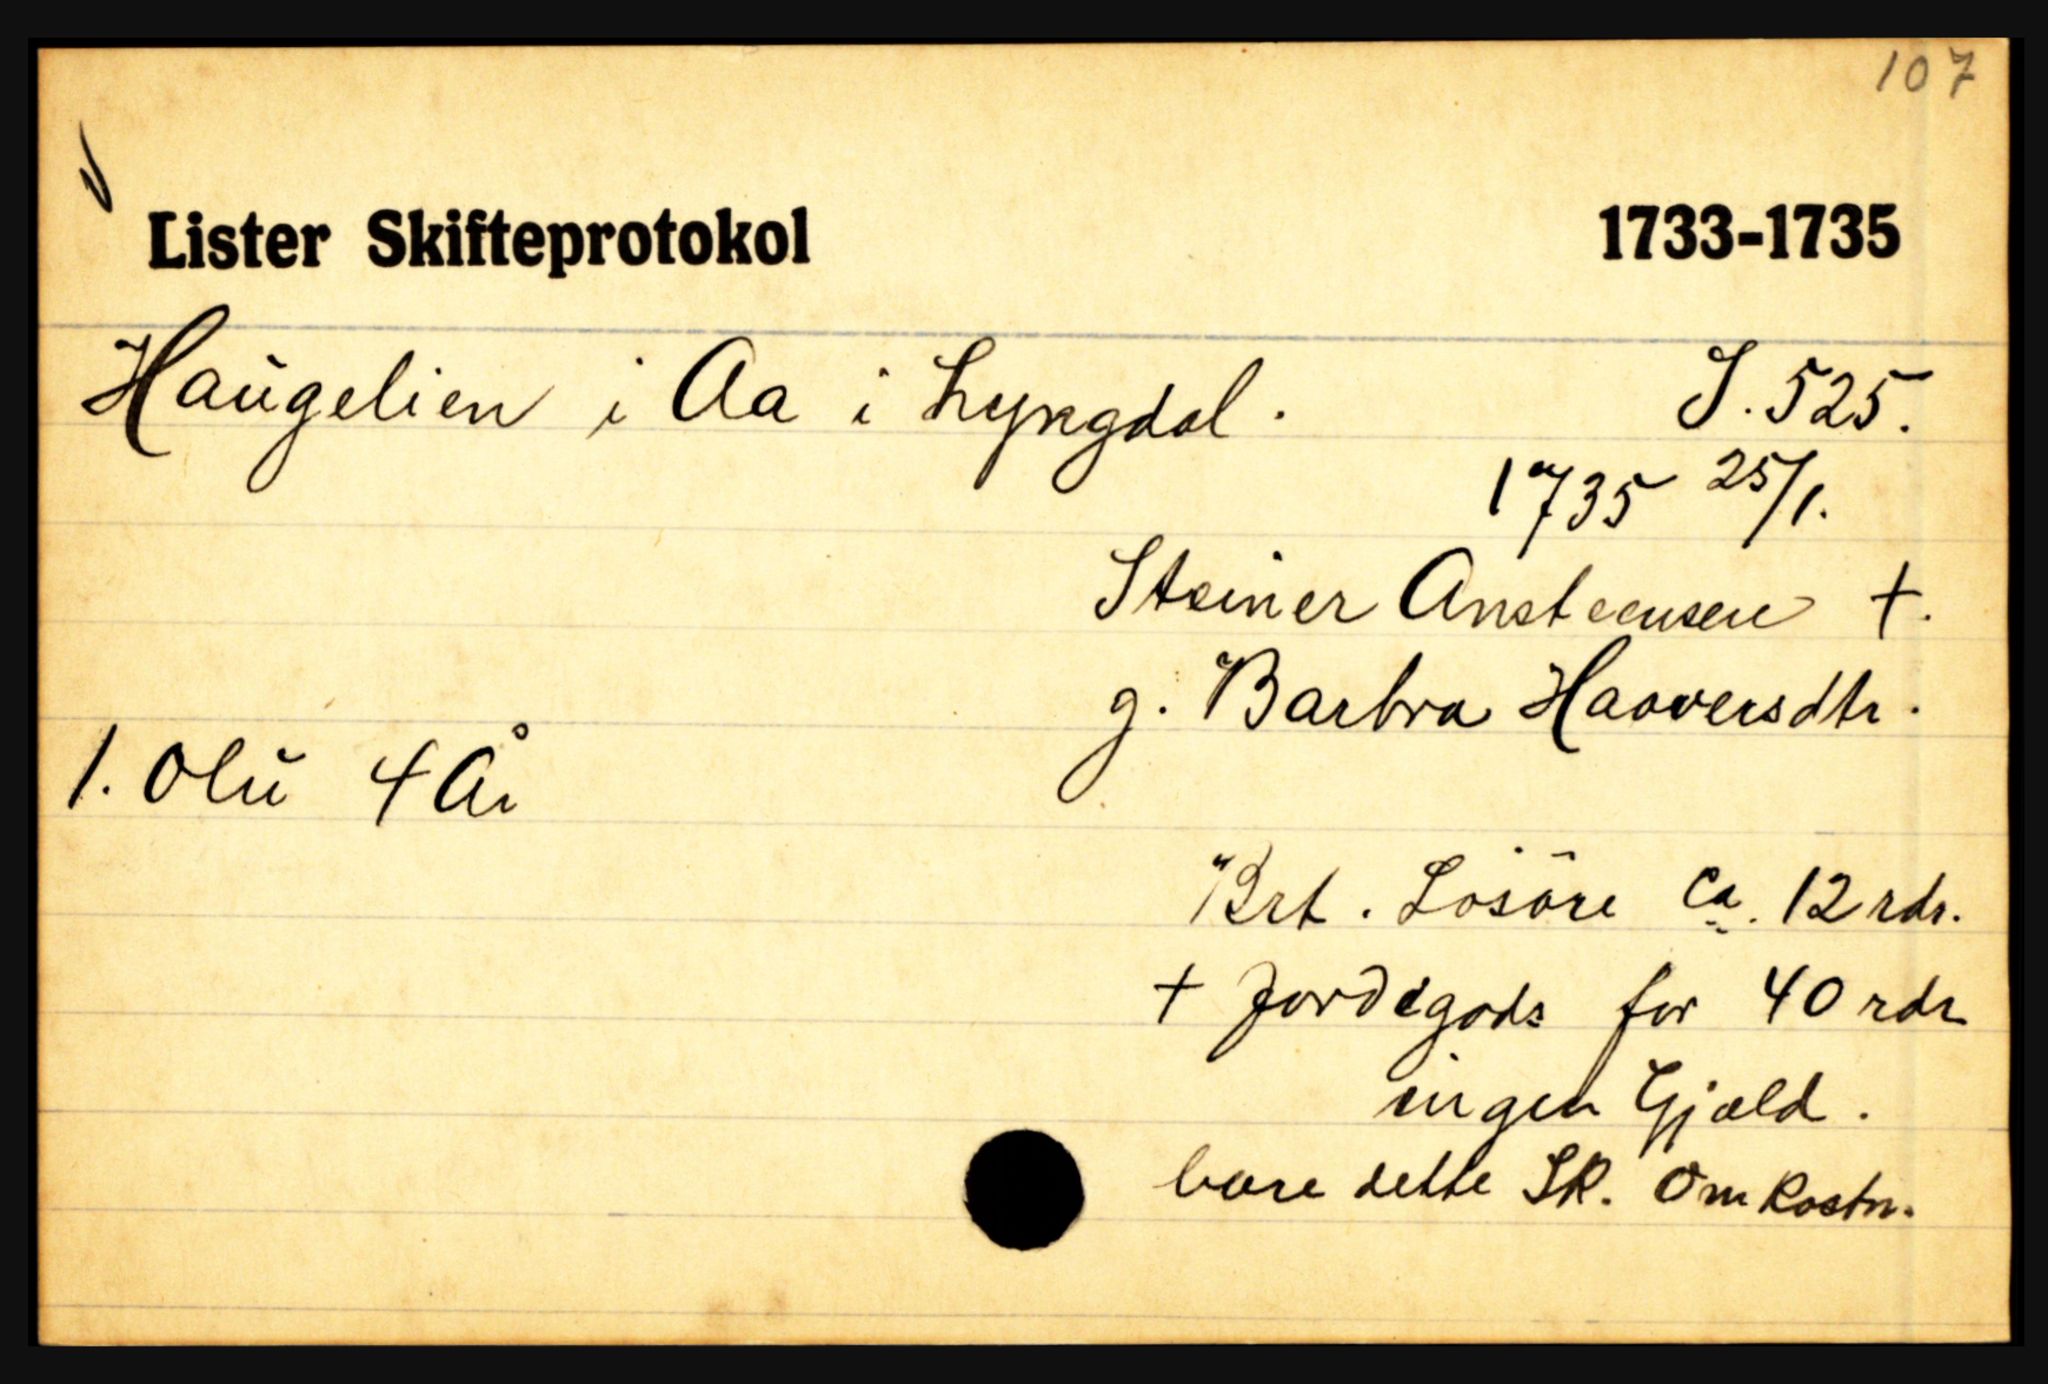 107
Lister Skifteprotokol 1733-1735
Haŭgelien i Aa i Lyngdal. S. 525.
1735 25/1.
Steiner Ansteensen †.
g. Barbra Haaversdtr.
1. Olŭ 4 År
Brt. Losöre ca. 12 rdr.
+ Jordegods for 40 rdr
ingen Gjæld.
bare dette Sk. Omkostn.